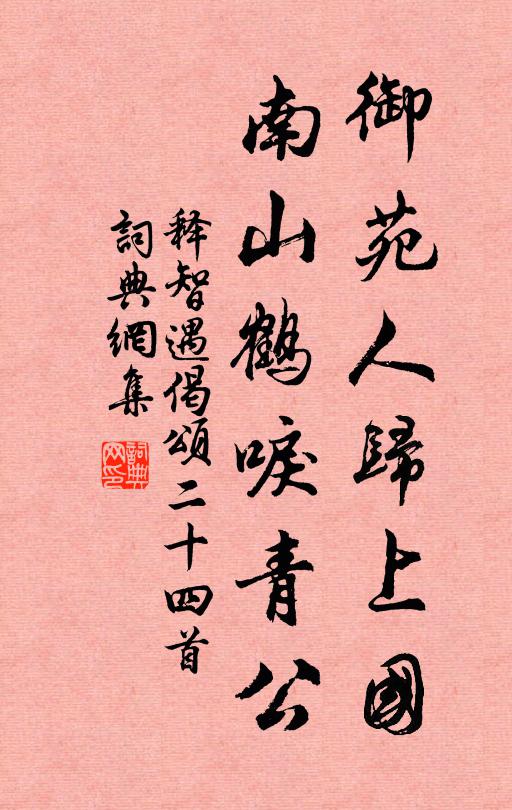 御苑人歸上國
南山鶴唳青公
释智遇偈頌二十四首
詞典網集
詞典网印